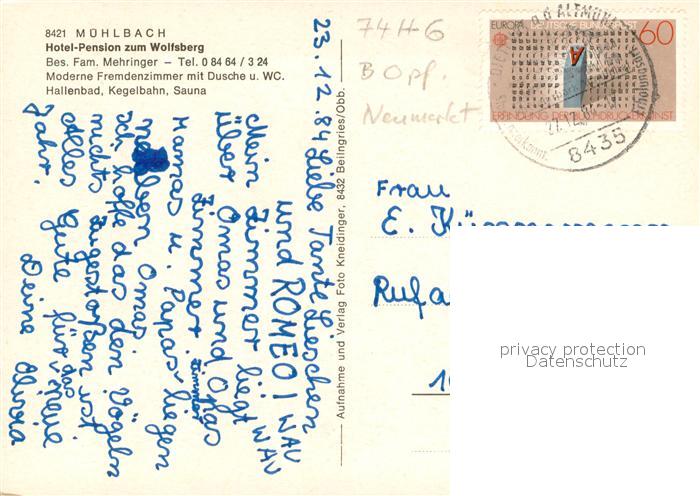 8421 MÜHLBACH
Hotel-Pension zum Wolfsberg
Bes. Fam. Mehringer – Tel. 0 84 64 / 3 24
Moderne Fremdenzimmer mit Dusche u. WC.
Hallenbad, Kegelbahn, Sauna
23.12.84 Liebe Tante Lieschen
und ROMEO! WAU
Mein Zimmer liegt WAU
über Omas und Opas
Zimmer. Zimmer
Mamas u. Papas liegen
neben Omas.
Ich hoffe das den Vögeln
nichts zugestoßen ist
Alles Gute für das neue
Jahr. Deine
Aufnahme und Verlag Foto Kneidinger, 8432 Beilngries/Obb.
74H-6
B Opf.
Neumarkt
EUROPA DEUTSCHE BUNDESPOST 60
ERFINDUNG DER BUCHDRUCKERKUNST
8435
Frau
E.
Rufa
privacy protection
Datenschutz